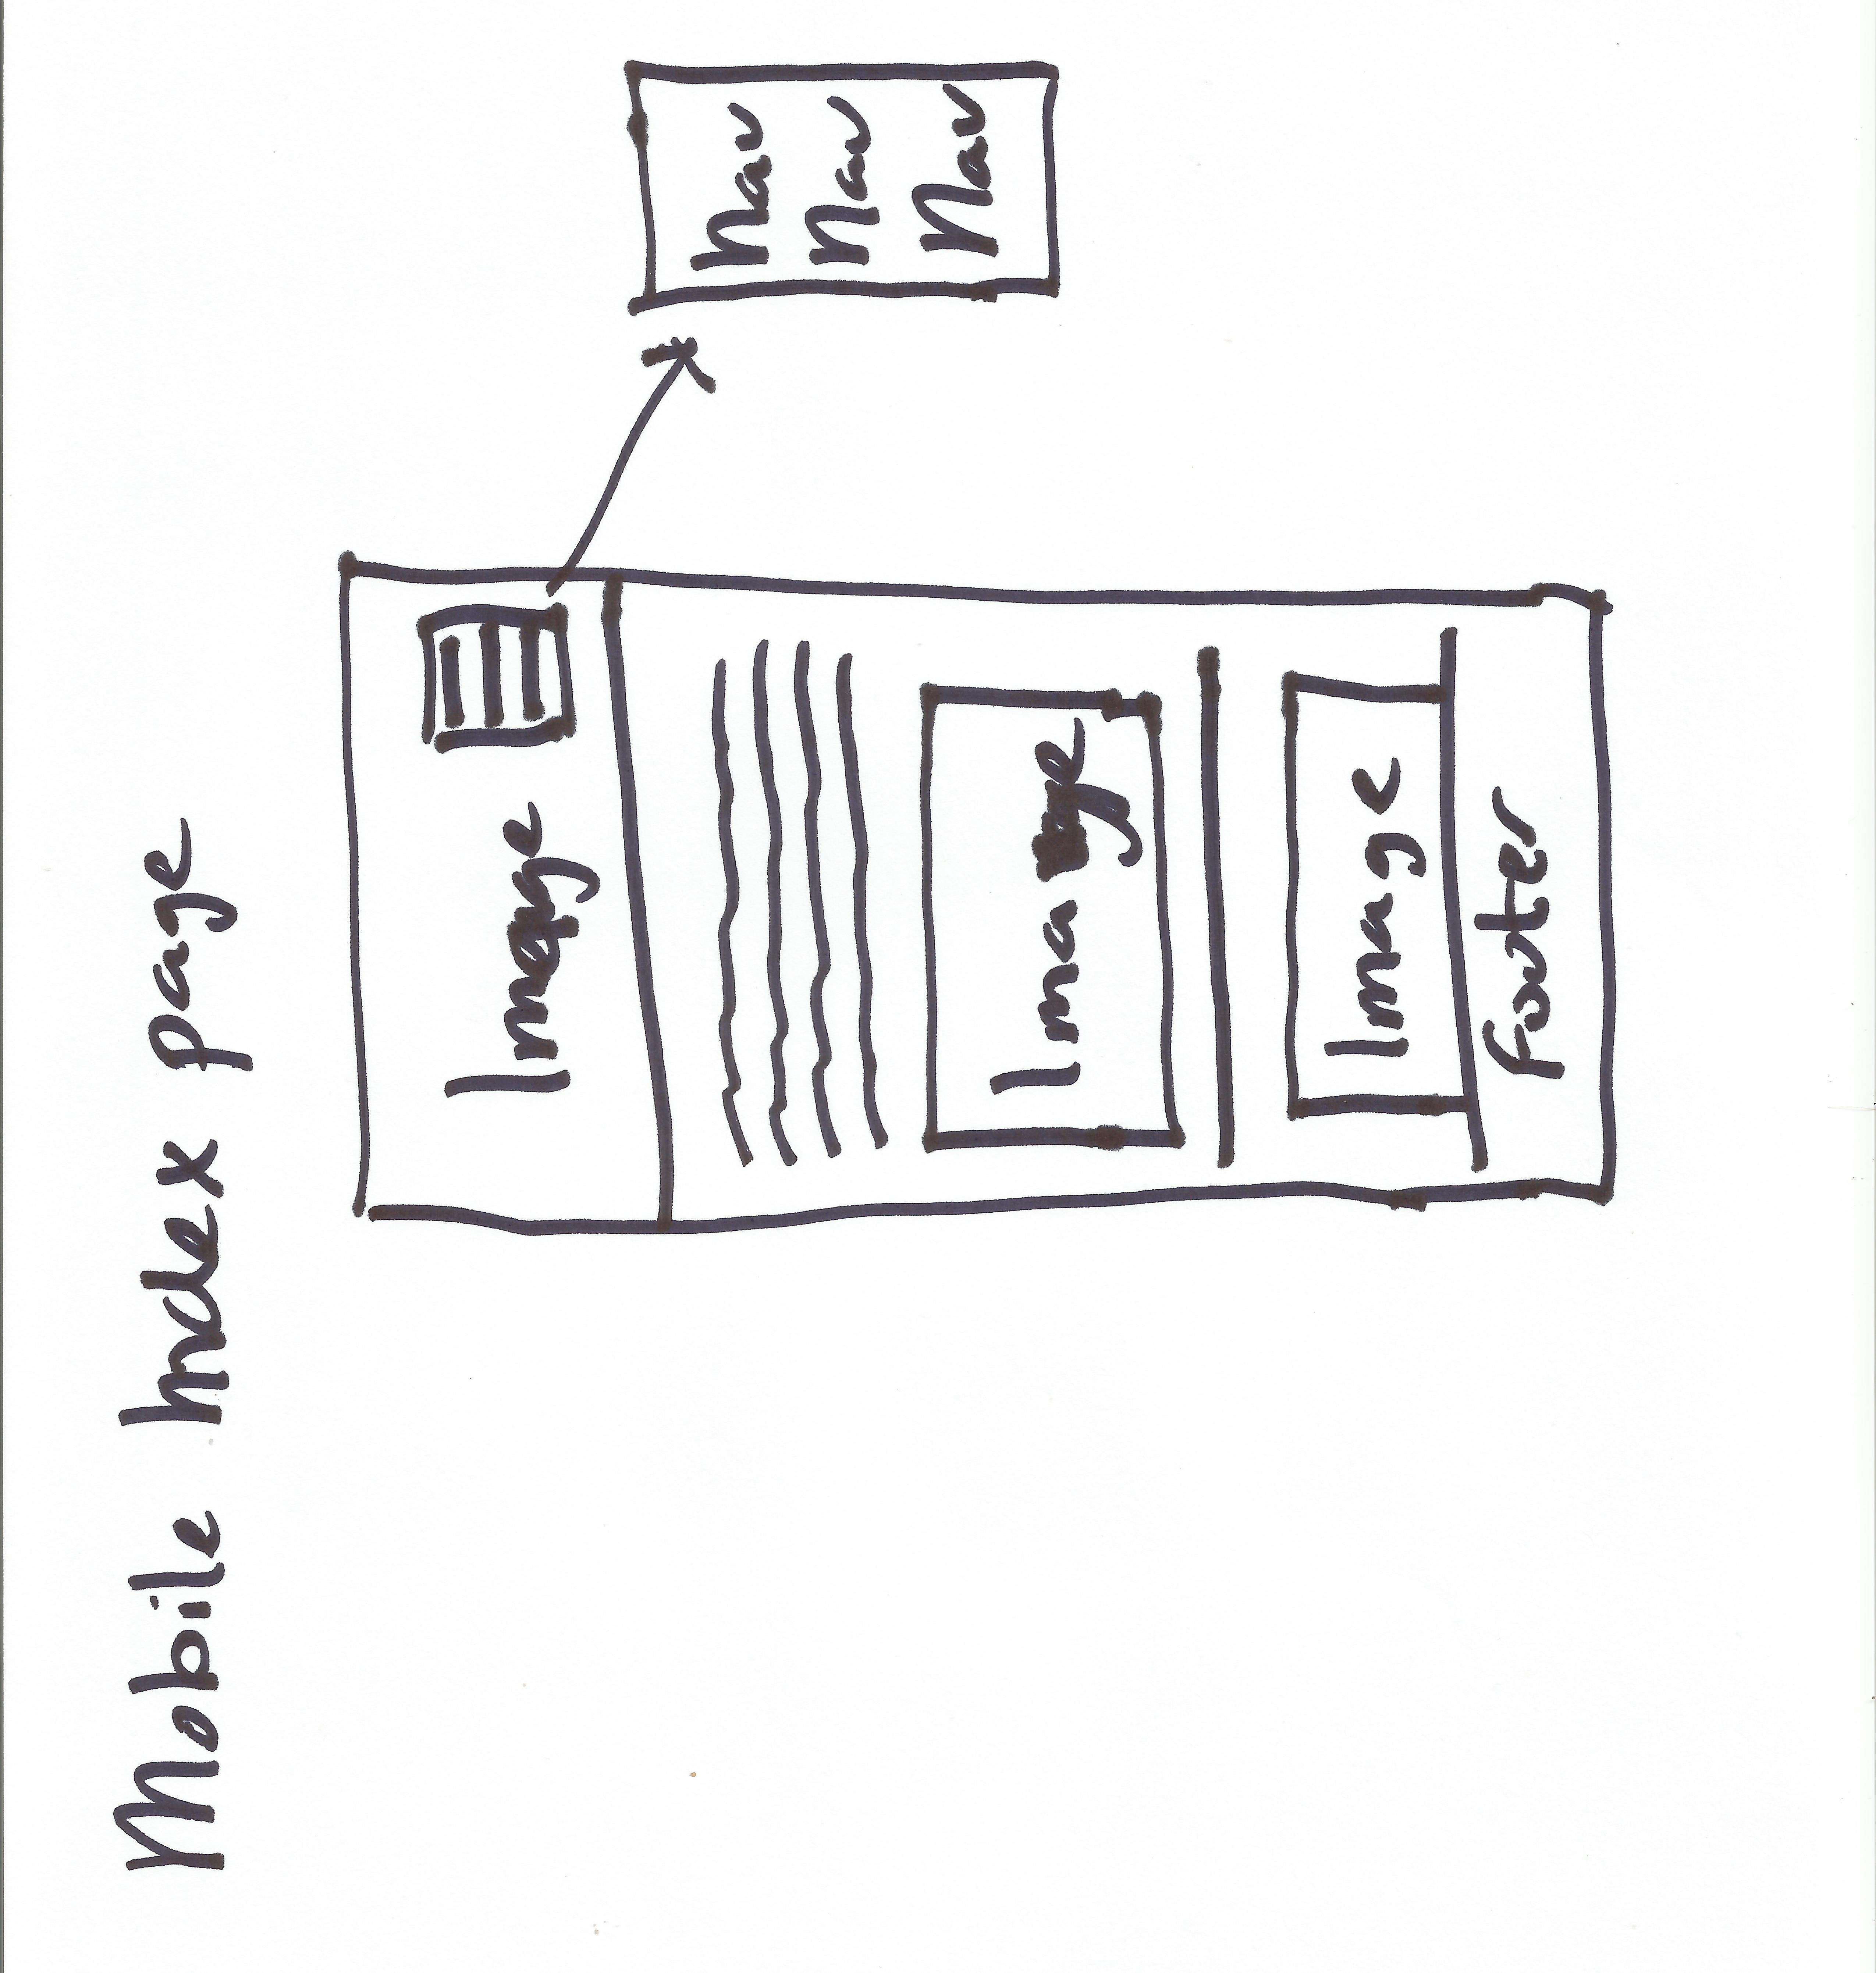 Mobile Index page
Image
Nav
Nav
Nav
Image
Image
Footer